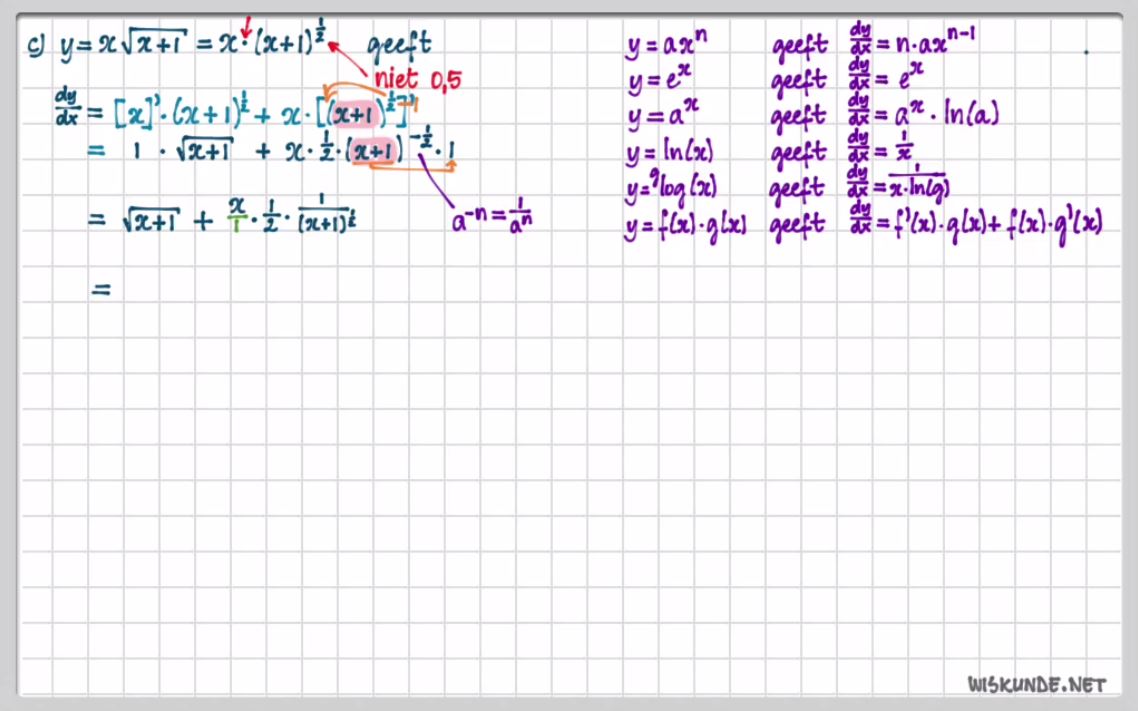 c) y = x√(x+1) = x · (x+1)^½ geeft
niet 0,5
dy/dx = [x]' · (x+1)^½ + x · [(x+1)^½]'
= 1 · √(x+1) + x · ½ · (x+1)^-½ · 1
a^-n = 1/a^n
= √(x+1) + x/1 · ½ · 1/(x+1)^½
=
y = ax^n geeft dy/dx = n · ax^n-1
y = e^x geeft dy/dx = e^x
y = a^x geeft dy/dx = a^x · ln(a)
y = ln(x) geeft dy/dx = 1/x
y = ^g log(x) geeft dy/dx = 1/(x · ln(g))
y = f(x) · g(x) geeft dy/dx = f'(x) · g(x) + f(x) · g'(x)
WISKUNDE.NET